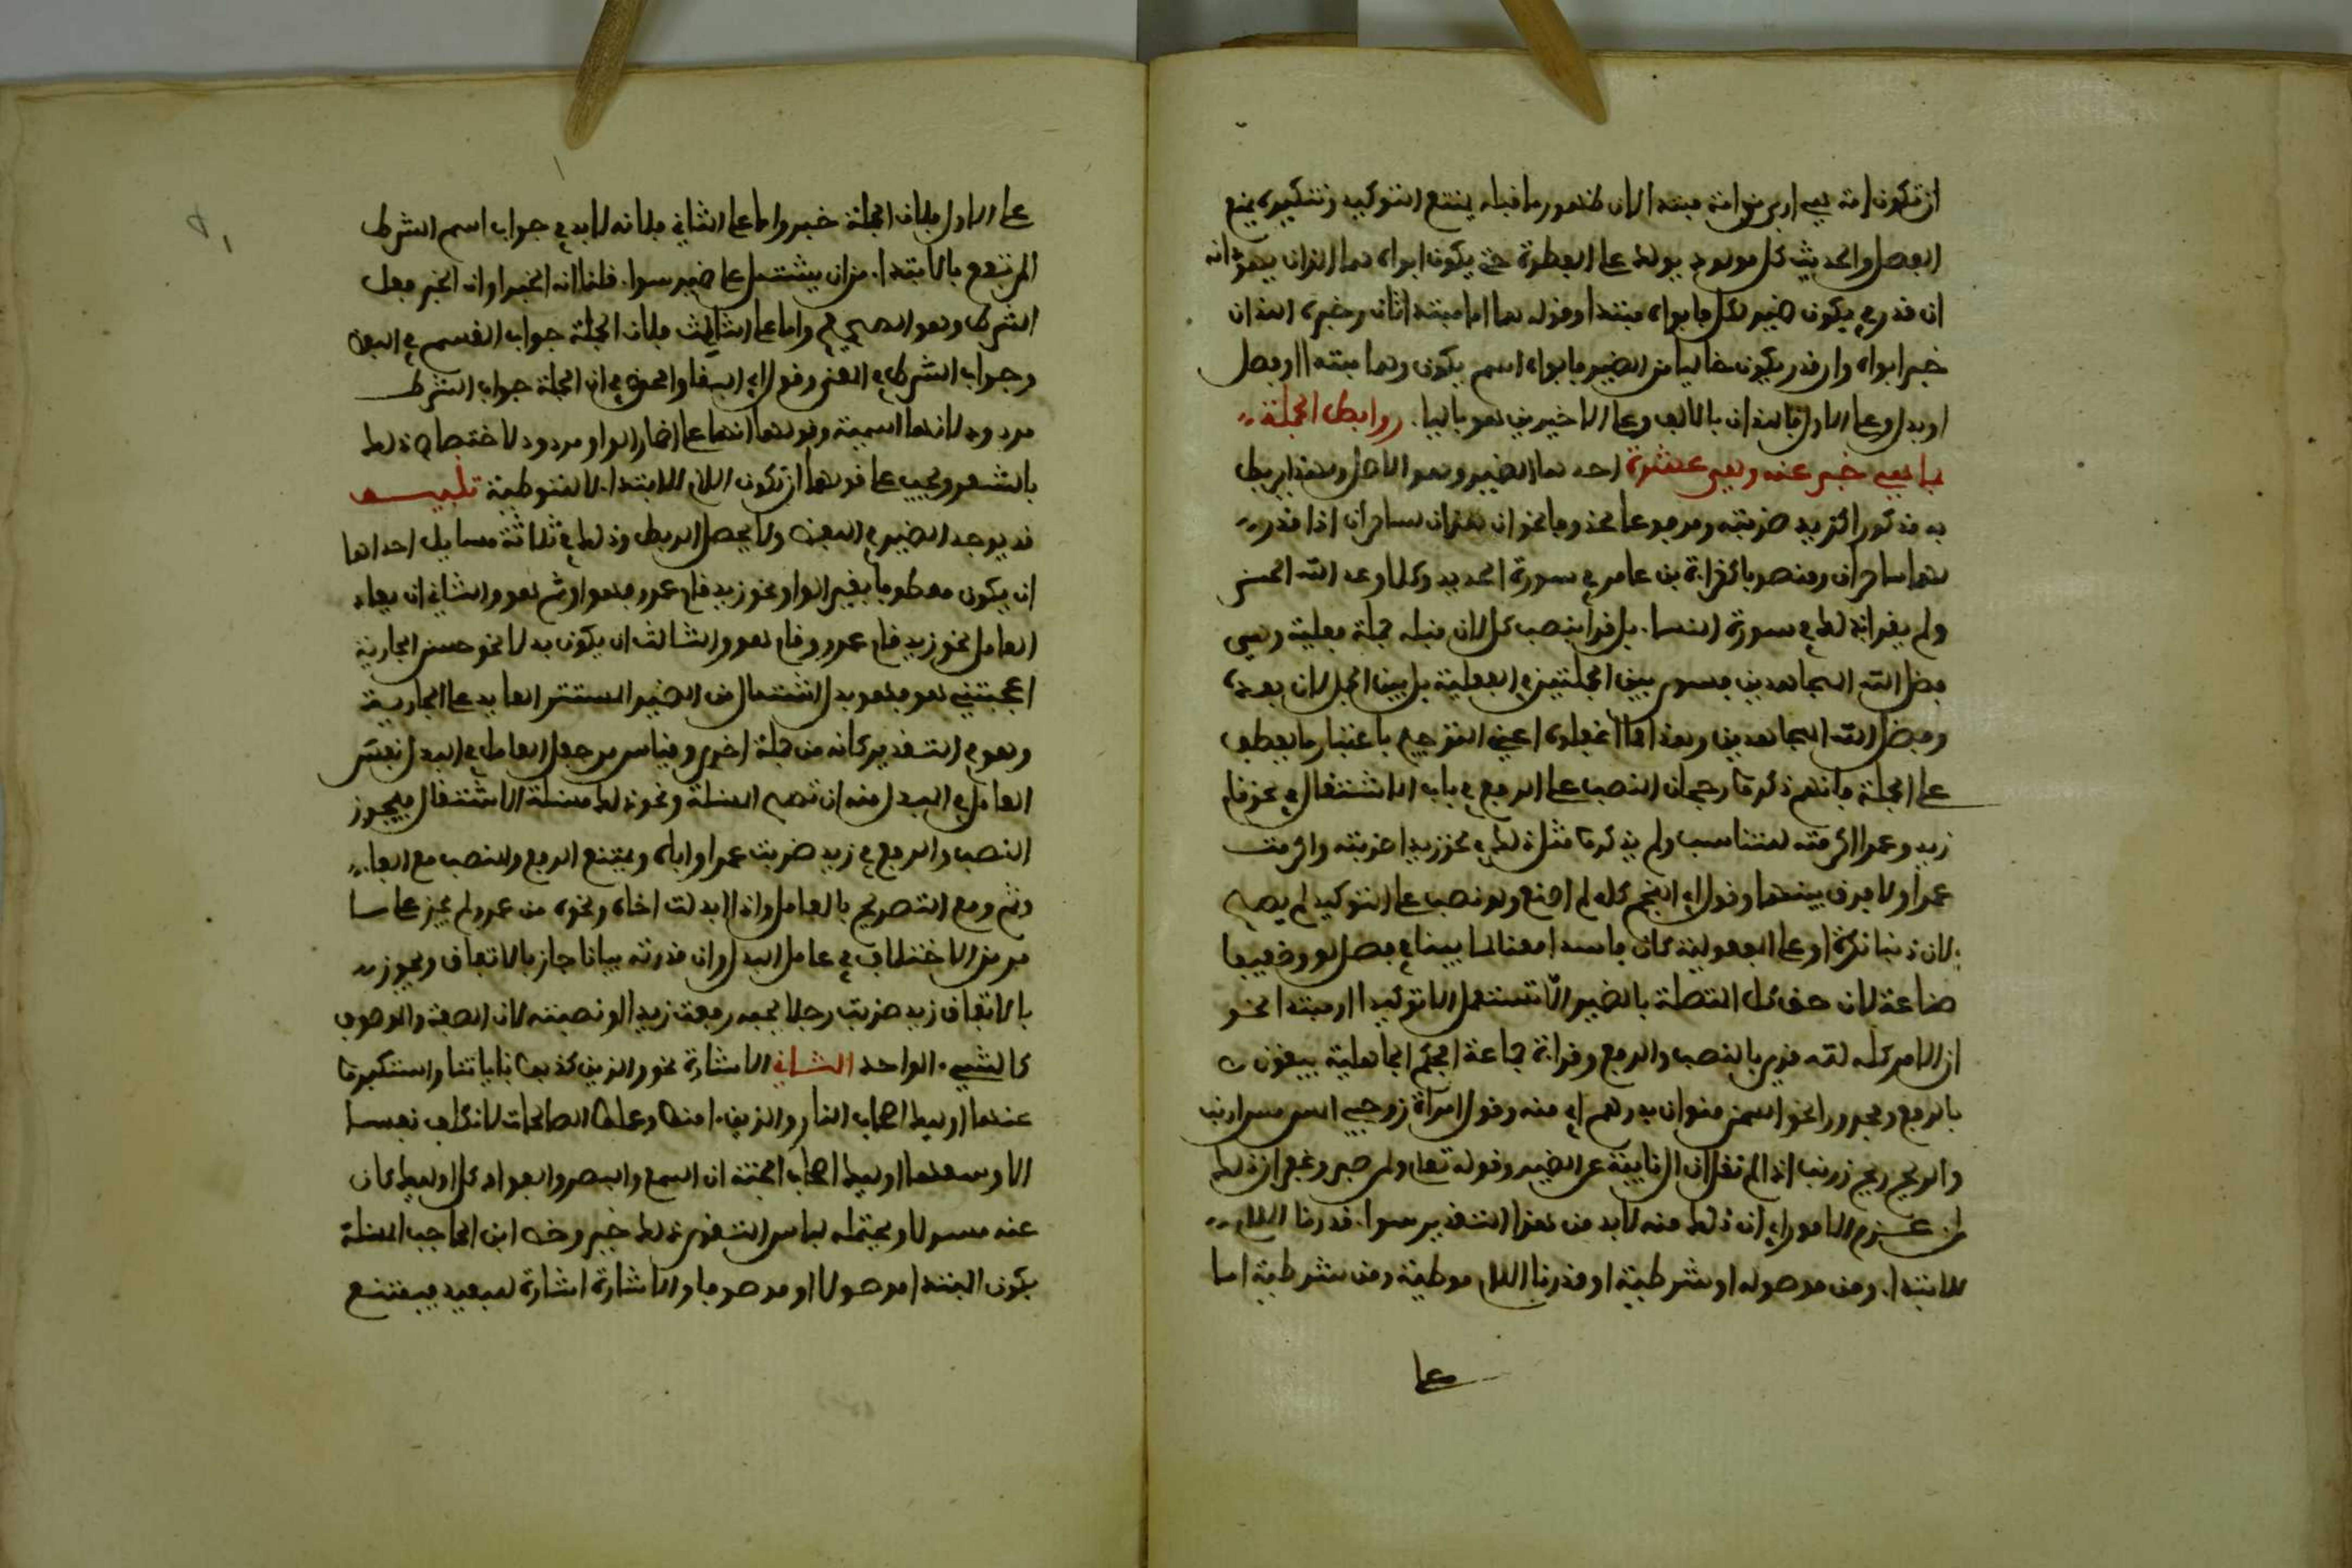 ان تكون امة هي اربى من امة مبتدا لان ظهور ما قبله يمنع التوكيد وتنكيره يمنع
الفصل والحديث كل مولود يولد على الفطرة حتى يكون ابواه هما اللذان يهودانه
ان قدر في يكون ضمير لكل فابواه مبتدا وقوله هما اما مبتدا ثان وخبره اللذان
خبر ابواه وان قدر يكون خاليا من الضمير فابواه اسم يكون وهما مبتدا او فصل
او بدل وعلى الاول فاللذان بالالف وعلى الاخيرين هو باليا. روابط الجملة
بما هي خبر عنه وهي عشرة احدها الضمير وهو الاصل ولهذا يربط
به مذكورا كزيد ضربته ومرفوعا محذوفا نحو ان هذان لساحران اذا قدر
لهما ساحران ومنصوبا كقراءة بن عامر في سورة الحديد وكل وعد الله الحسنى
ولم يقرا بذلك في سورة النسا. بل قرا بنصب كل لان قبله جملة فعلية وهي
فضل الله المجاهدين فسوى بين الجملتين في الفعلية بل بين الجمل لان بعده
وفضل الله المجاهدين وهذا مما اغفلوه اعني الترجيح باعتبار ما يعطف
على الجملة فانهم ذكروا رجحان النصب على الرفع في باب الاشتغال في نحو قام
زيد وعمرا اكرمته للتناسب ولم يذكروا مثل ذلك في نحو زيد اضربته واكرمت
عمرا ولا فرق بينهما وقول ابي النجم كله لم اصنع ولو نصب على التوكيد لم يصح
لان ذنبا نكرة او على المفعولية كان فاسدا معنا لما بيناه في فصل كل وضعيفا
صناعة لان حق كل المتصلة بالضمير الا تستعمل الا توكيدا او مبتدا نحو
ان الامر كله لله قري بالنصب والرفع وقراءة جماعة افحكم الجاهلية يبغون
بالرفع ومجرورا نحو السمن منوان بدرهم اي منه وقول امراة زوجي المس مس ارنب
والريح ريح زرنب اذا لم نقل ان ال نايبة عن الضمير وقوله تعلى ولمن صبر وغفر ان ذلك
لمن عزم الامور اي ان ذلك منه لا بد من هذا التقدير سوا. قدرنا اللام
للابتدا. ومن موصولة او شرطية او قدرنا اللام موطية ومن شرطية اما
على
على الاول فلان الجملة خبر واما على الثاني فلانه لا بد في جواب اسم الشرط
المرتفع بالابتدا. من ان يشتمل على ضمير سوا. قلنا انه الخبر او ان الخبر فعل
الشرط وهو الصحيح واما على الثالث فلان الجملة جواب القسم في اللفظ
وجواب الشرط في المعنى وقول ابي البقا والحوفي ان الجملة جواب الشرط
مردود لانها اسمية وقولهما انها على اضمار الفا مردود لاختصاص ذلك
بالشعر ويجب على قولهما ان تكون اللام للابتدا. لا للتوطية تنبيه
قد يوجد الضمير في اللفظ ولا يحصل الربط وذلك في ثلاثة مسايل احداها
ان يكون معطوفا بغير الواو نحو زيد قام عمرو فهو او ثم هو والثاني ان يعاد
العامل نحو زيد قام عمرو وقام هو والثالث ان يكون بدلا نحو حسن الجارية
اعجبتني هو فهو بدل اشتمال من الضمير المستتر العايد على الجارية
وهو في التقدير كانه من جملة اخرى وقياس من جعل العامل في البدل نفس
العامل في المبدل منه ان تصح المسئلة ونحو ذلك مسئلة الاشتغال فيجوز
النصب والرفع في زيد ضربت عمرا واباه ويمتنع الرفع والنصب مع الفا.
وثم ومع التصريح بالعامل واذا ابدلت اخاه ونحوه من عمرو لم يجز على ما
مر من الاختلاف في عامل البدل وان قدرته بيانا جاز بالاتفاق ويجوز
بالاتفاق زيد ضربت رجلا يحبه رفعت زيدا او نصبته لان الصفة والموصوف
كالشي. الواحد الثاني الاشارة نحو والذين كذبوا باياتنا واستكبروا
عنها اوليك اصحاب النار والذين. امنوا وعملوا الصالحات لا نكلف نفسا
الا وسعها اوليك اصحاب الجنة ان السمع والبصر والفواد كل اوليك كان
عنه مسولا ويحتمله لباس التقوى ذلك خير وخص ابن الحاجب المسئلة
بكون المبتدا موصولا او موصوفا والاشارة اشارة لبعيد فيمتنع